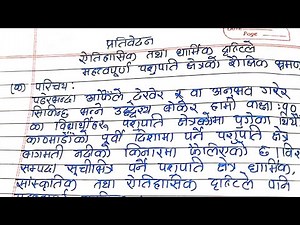 Page
प्रतिवेदन
ऐतिहासिक तथा धार्मिक दृष्टिले
महत्वपूर्ण पशुपति क्षेत्रको शैक्षिक भ्रमण
(क) परिचय:
पढेरभन्दा आफैंले हेरेर र वा अनुभव गरेर
सिकिन्छ भन्ने उद्देश्य बोकेर हामी कक्षा: १०
का विद्यार्थीहरू पशुपति क्षेत्रको भ्रमणमा पुगेका थियौं
काठमाडौंको पूर्वी दिशामा पर्ने पशुपति क्षेत्र
बागमती नदीको किनारमा फैलिएको छ।
सम्पदा सूचीभित्र पर्ने पशुपति क्षेत्र धार्मिक,
सांस्कृतिक तथा ऐतिहासिक दृष्टिले पनि